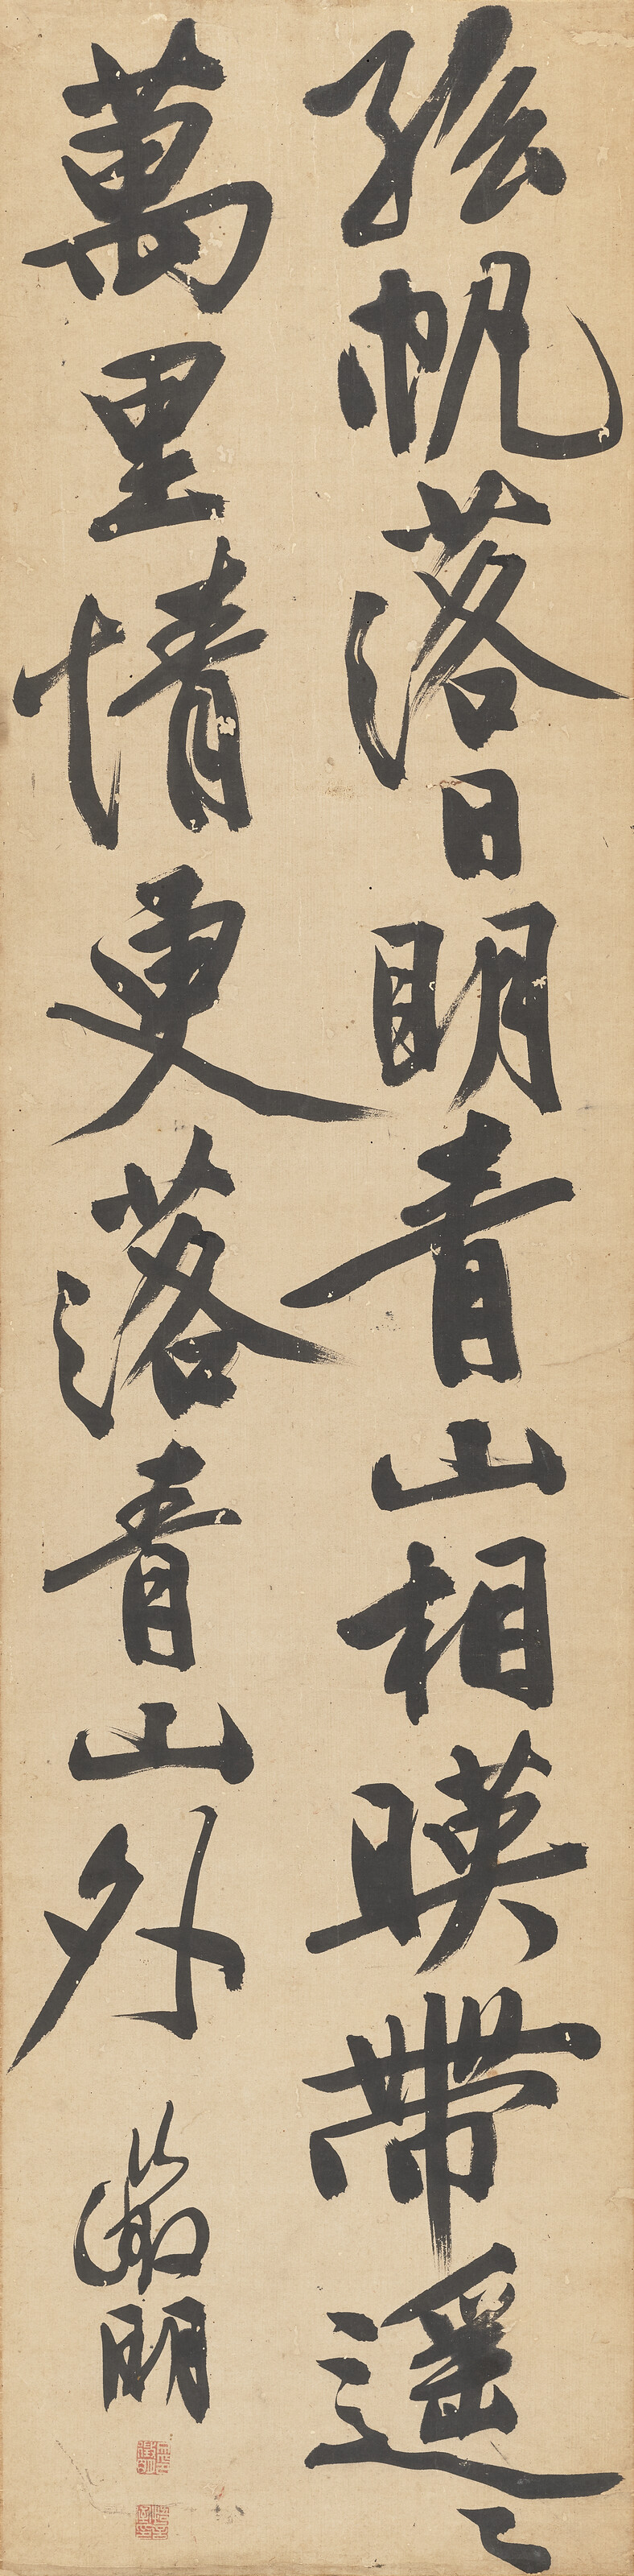 孤帆落日明青山相暎帶遥〻
萬里情更落青山外 徵明